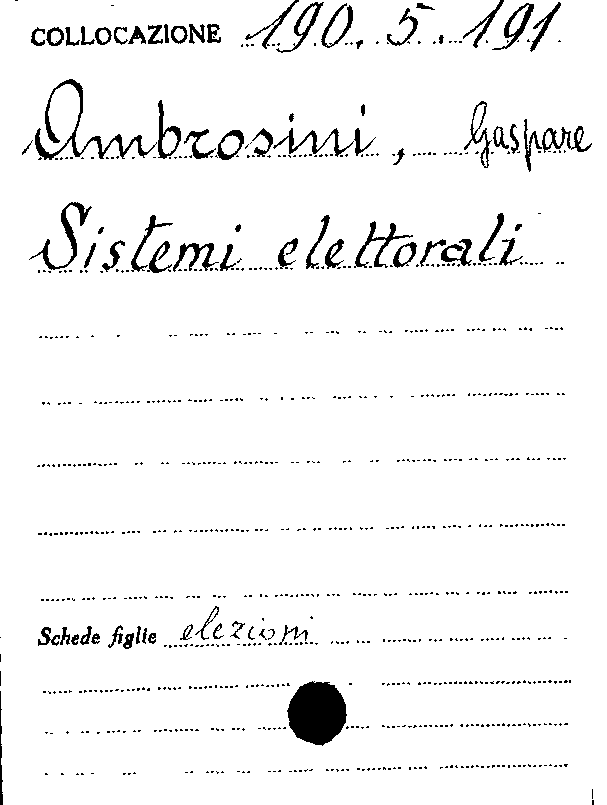 COLLOCAZIONE 190.5.191
Ambrosini, Gaspare
Sistemi elettorali
Schede figlie elezioni